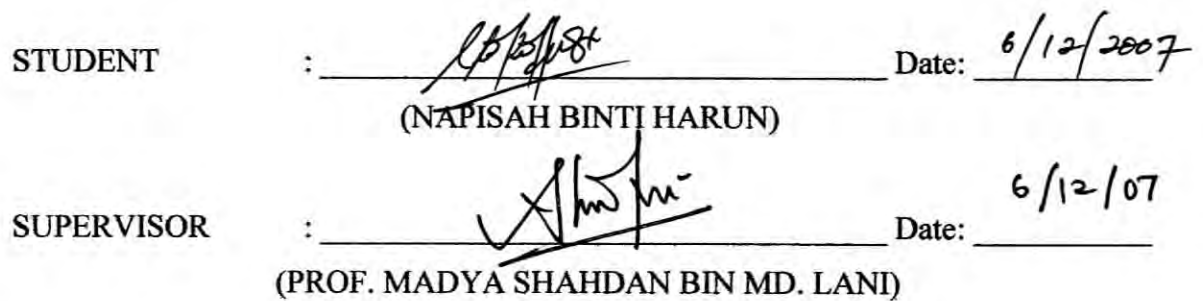 STUDENT : Date: 6/12/2007
(NAPISAH BINTI HARUN)
SUPERVISOR : Date: 6/12/07
(PROF. MADYA SHAHDAN BIN MD. LANI)